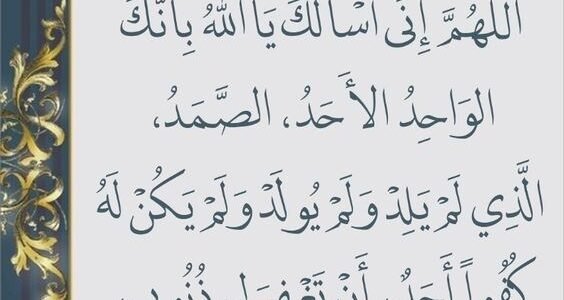 اللَّهُمَّ إِنِّي أَسْأَلُكَ يَا اللَّهُ بِأَنَّكَ
الوَاحِدُ الأَحَدُ، الصَّمَدُ،
الَّذِي لَمْ يَلِدْ وَلَمْ يُولَدْ وَلَمْ يَكُنْ لَهُ
كُفُواً أَحَدٌ، أَنْ تَغْفِرَ لِي ذُنُوبِي